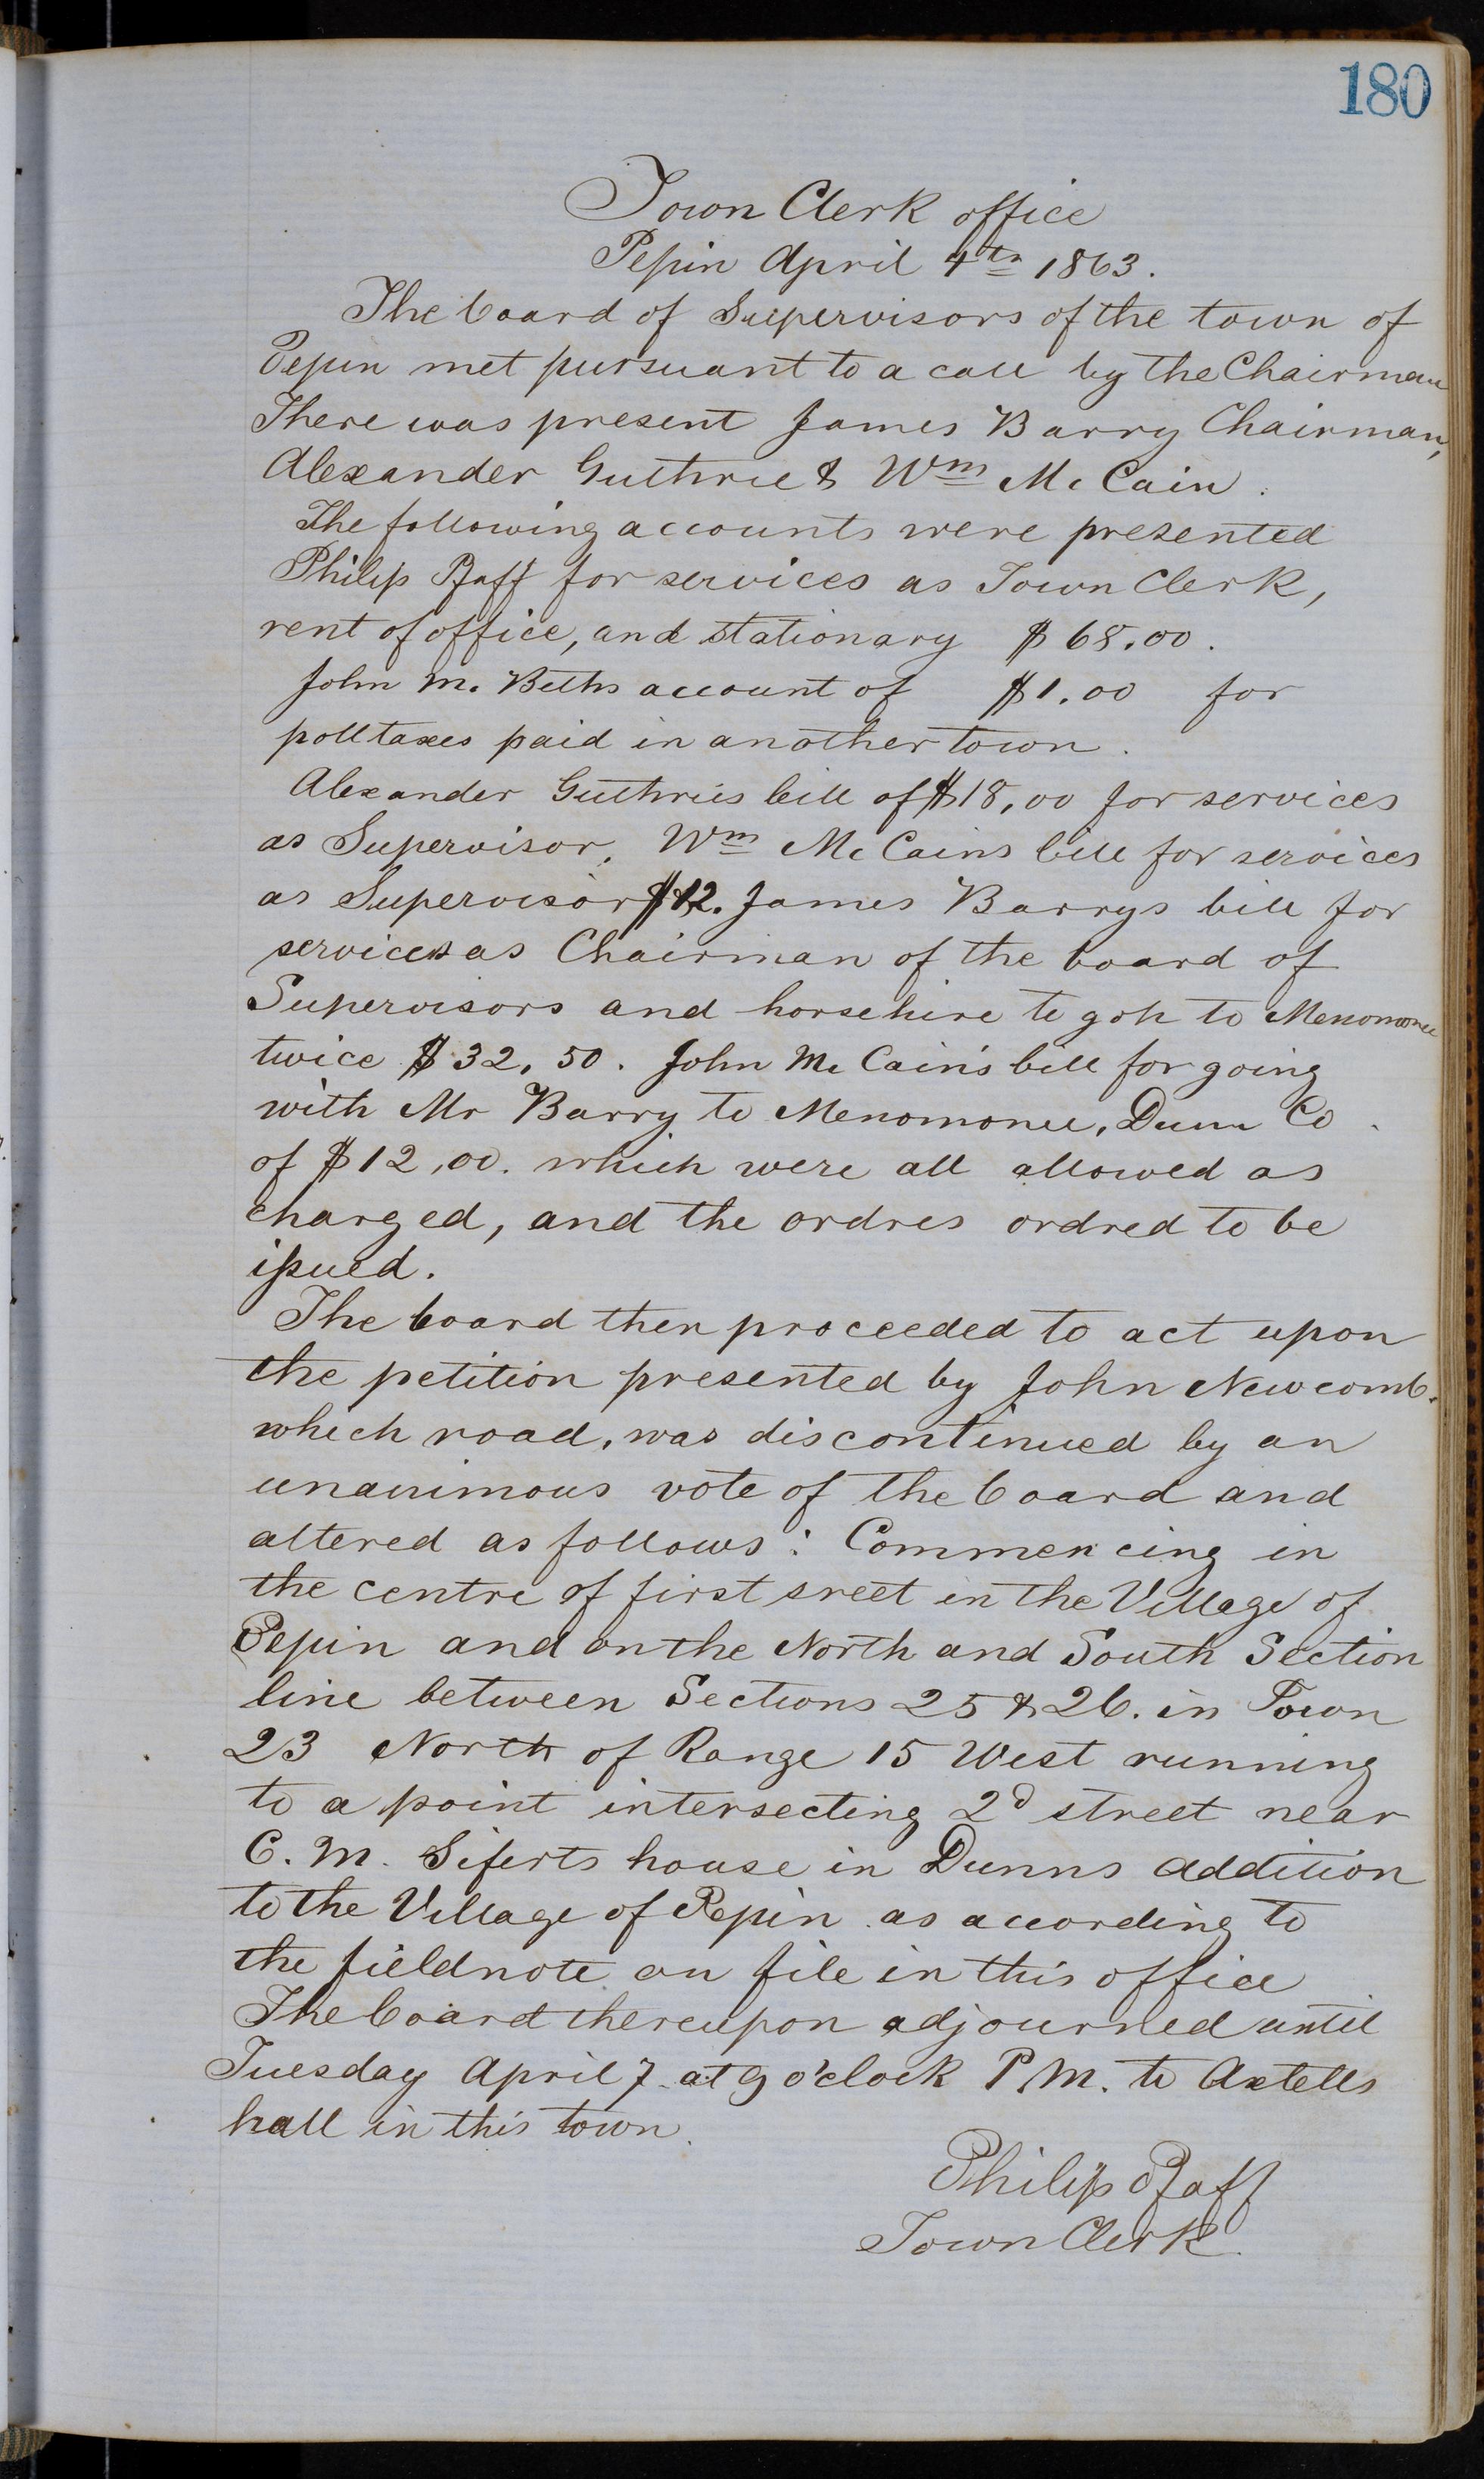 180
Town Clerk office
Pepin April 4th 1863.
The board of Supervisors of the town of
Pepin met pursuant to a call by the Chairman
There was present James Barry Chairman,
Alexander Guthrie & Wm Mc Cain.
The following accounts were presented
Philip Pfaff for services as Town Clerk,
rent of office, and stationary $68.00.
John M. Beths account of $1.00 for
polltaxes paid in another town.
Alexander Guthries bill of $18,00 for services
as Supervisor, Wm Mc Cains bill for services
as Supervisor $12. James Barrys bill for
services as Chairman of the board of
Supervisors and horsehire to go to Menomonee
twice $32,50. John Mc Cain's bill for going
with Mr Barry to Menomonee, Dunn Co.
of $12,00. which were all allowed as
charged, and the ordres ordred to be
issued.
The board then proceeded to act upon
the petition presented by John Newcomb.
which road, was discontinued by an
unanimous vote of the board and
altered as follows: Commencing in
the centre of first sreet in the Village of
Pepin and on the North and South Section
line between Sections 25 & 26. in Town
23 North of Range 15 West running
to a point intersecting 2d street near
C. M. Siferts house in Dunns addition
to the Village of Pepin as according to
the fieldnote on file in this office
The board thereupon adjourned until
Tuesday April 7 at 9 o'clock P.M. to Axtells
hall in this town.
Philip Pfaff
Town Clerk.